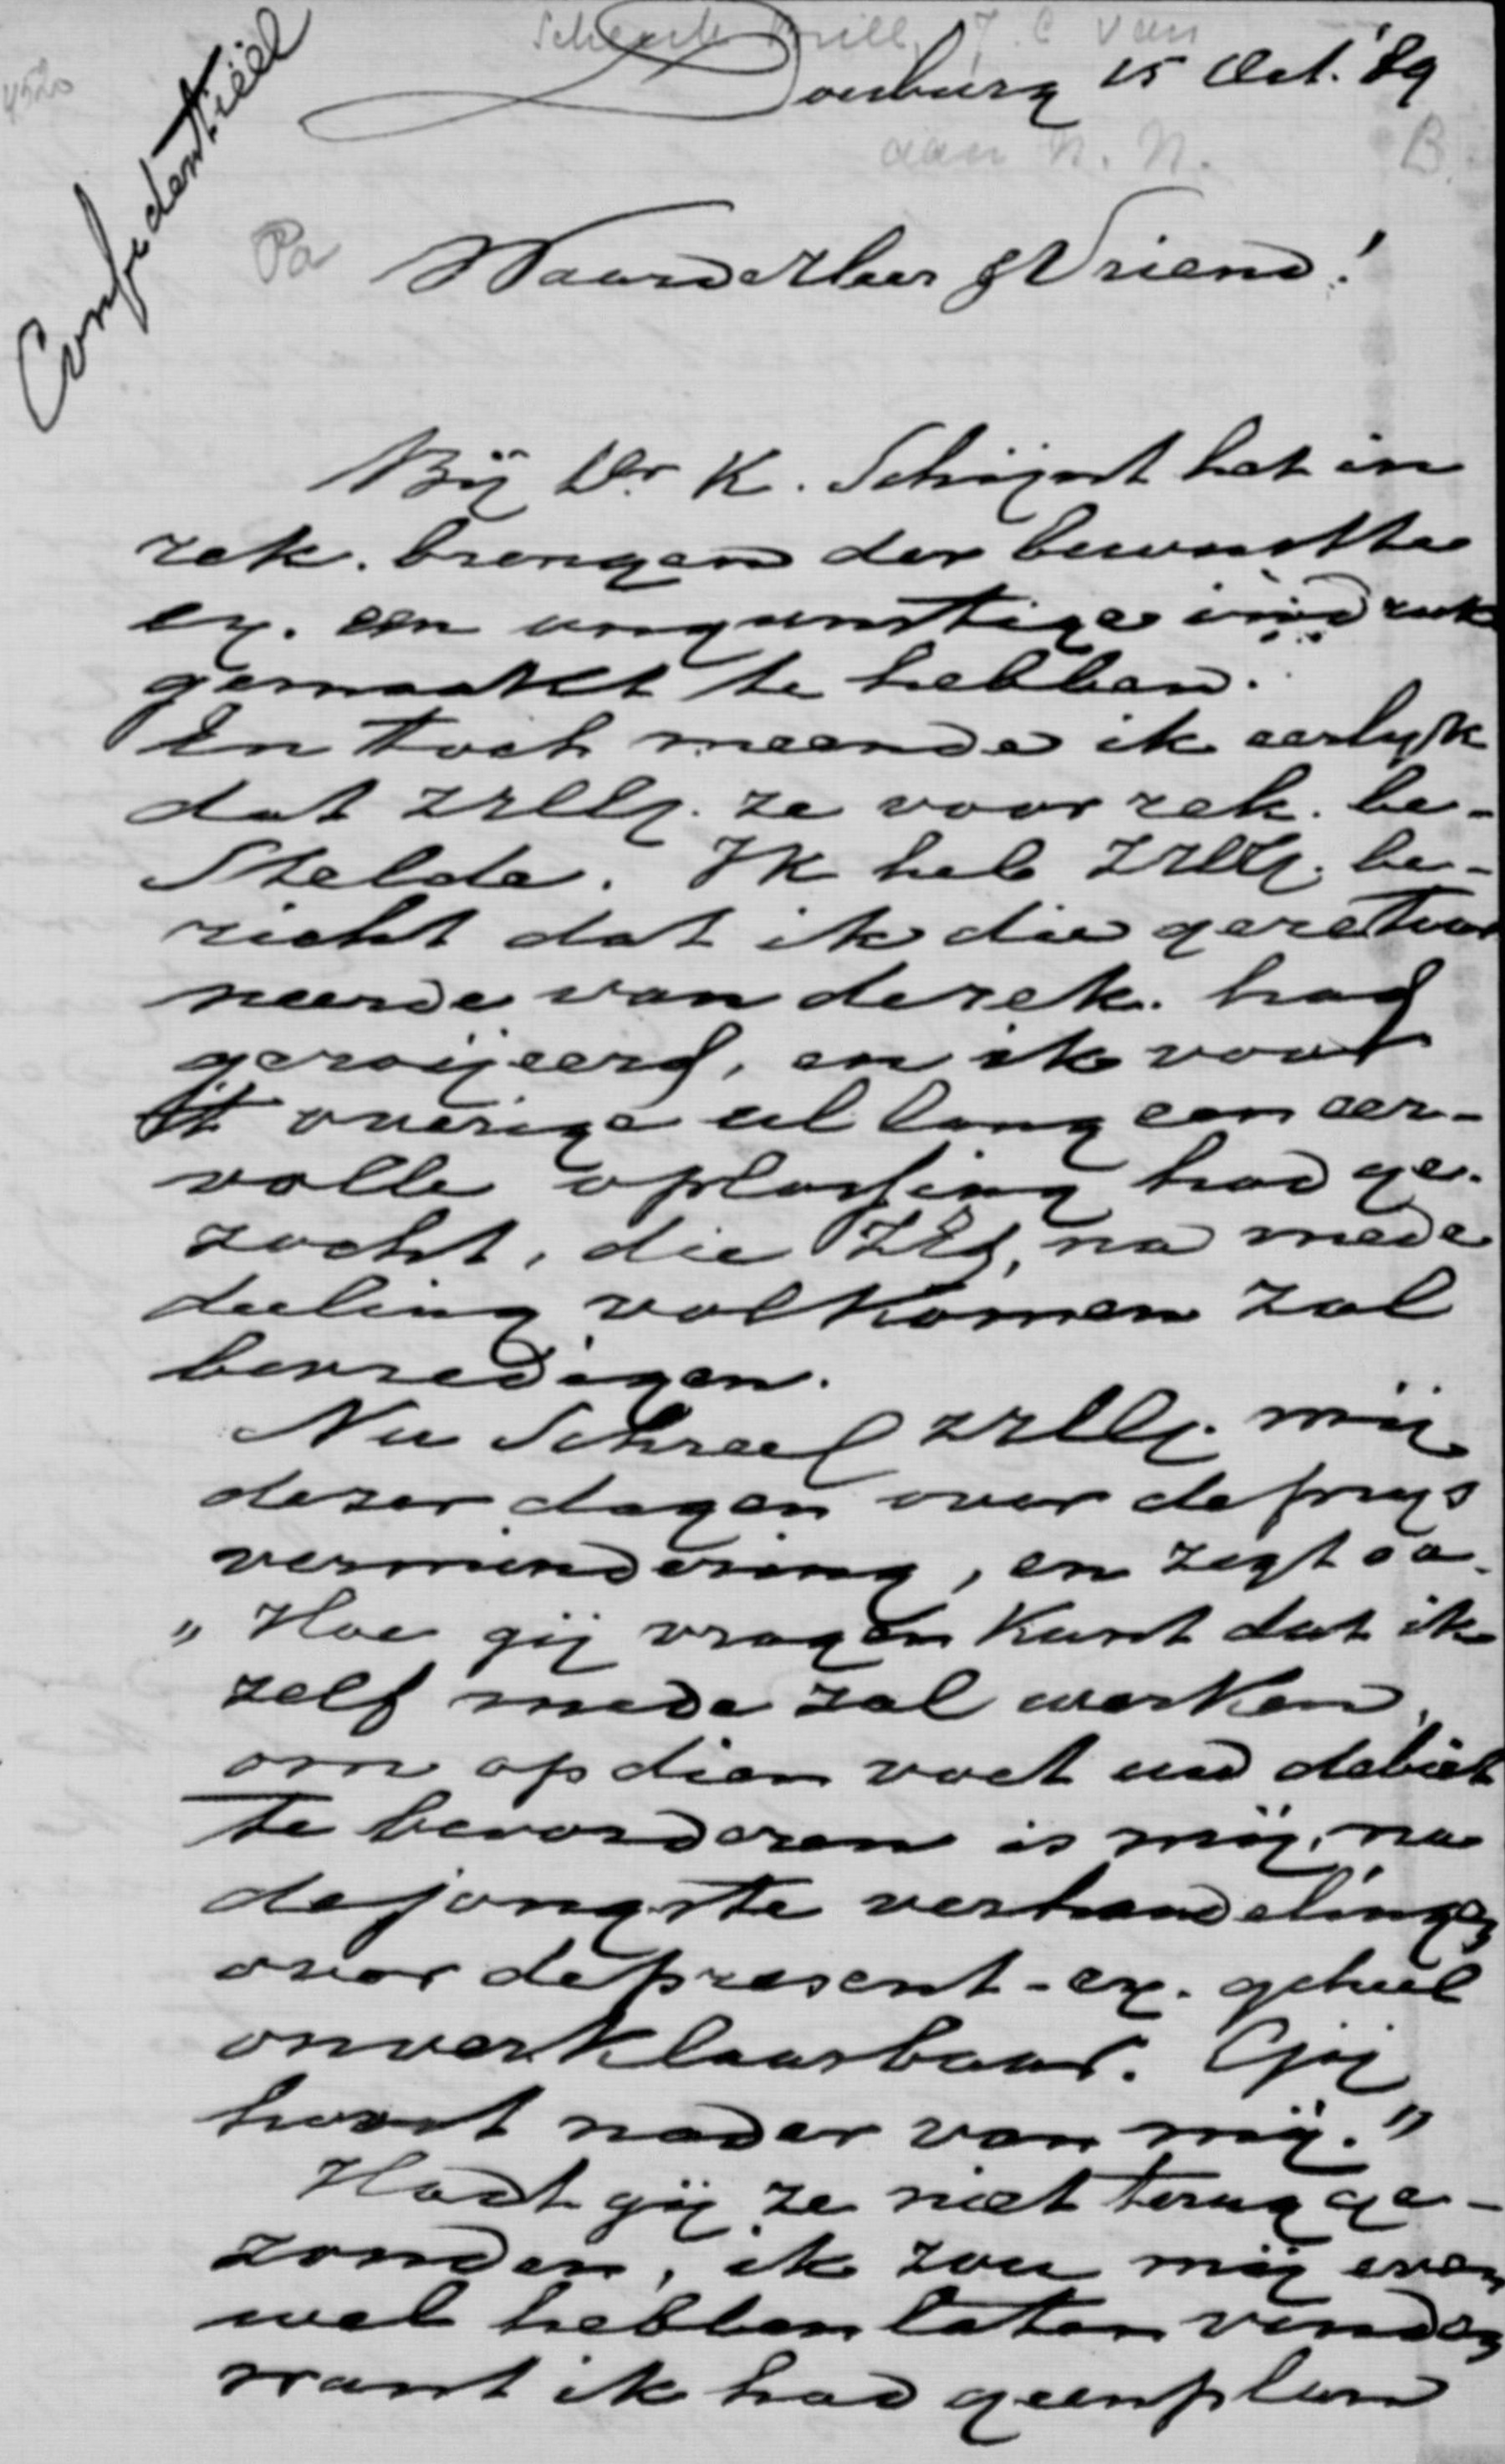 Schenk Brill, J. C van
Doesburg 15 Oct. '89
4520
aan N. N.
B.
Confidentiëel
Pa
Waarde Heer & Vriend!
Bij Dr. K. Schijnt het in
rek. brengen der bewuste
ex. een ongunstige indruk
gemaakt te hebben.
En toch meende ik eerlijk
dat ZEll. ze voor rek. be-
Stelde. Ik heb ZEll. be-
richt dat ik die geretour
neerde van de rek. had
geroijeerd, en ik voor
't overige al lang een eer-
volle oplossing had ge-
zocht, die ZEd, na mede
deeling volkomen zal
bevredigen.
Nu Schreef ZEll. mij
dezer dagen over de prijs
vermindering, en zegt oa.
„ Hoe gij vragen kunt dat ik
zelf mede zal werken,
om op dien voet uw debiet
te bevorderen is mij, na
de jongste verhandelingen
over de present-ex. geheel
onverklaarbaar. Gij
hoort nader van mij."
Hadt gij ze niet terug ge-
zonden, ik zou mij even
wel hebben laten vinden
want ik had geen plan